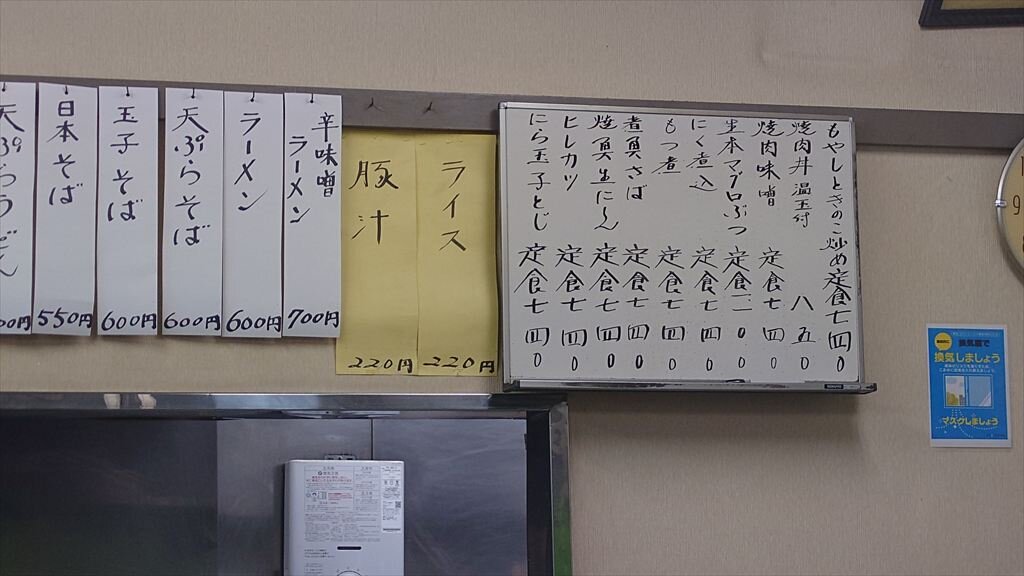 もやしときのこ炒め定食七四0
焼肉丼 温玉付 八五0
焼肉味噌 定食七四0
生本マグロぶつ 定食一一00
にく煮込 定食七四0
もつ煮 定食七四0
煮魚さば 定食七四0
焼魚生にしん 定食七四0
ヒレカツ 定食七四0
にら玉子とじ 定食七四0
ライス 220円
豚汁 220円
辛味噌
ラーメン 700円
ラーメン 600円
天ぷらそば 600円
玉子そば 600円
日本そば 550円
天ぷらうどん
換気扇で
換気しましょう
マスクしましょう
9